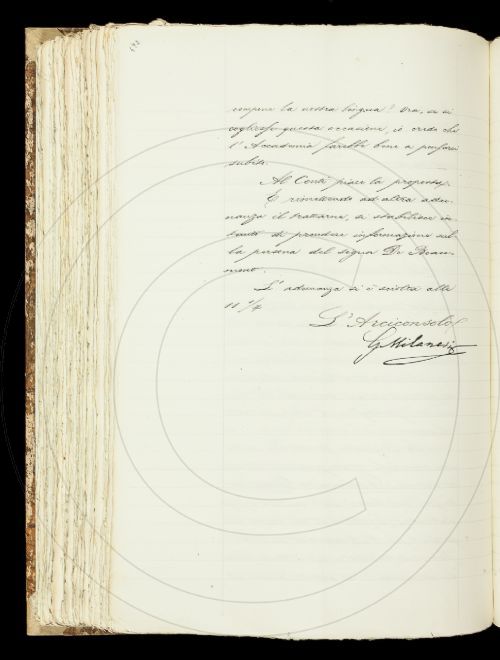 compone la nostra lingua? Ora, se si
cogliesse questa occasione, io credo che
l'Accademia farebbe bene a pensarci
subito.
Al Conti piace la proposta.
E rimettendo ad altra adu-
nanza il trattarne, si stabilisce in-
tanto di prendere informazione sul-
la persona del signor De Beau-
mont.
L'adunanza si è sciolta alle
11 1/4
L'Arciconsolo
G Milanesi